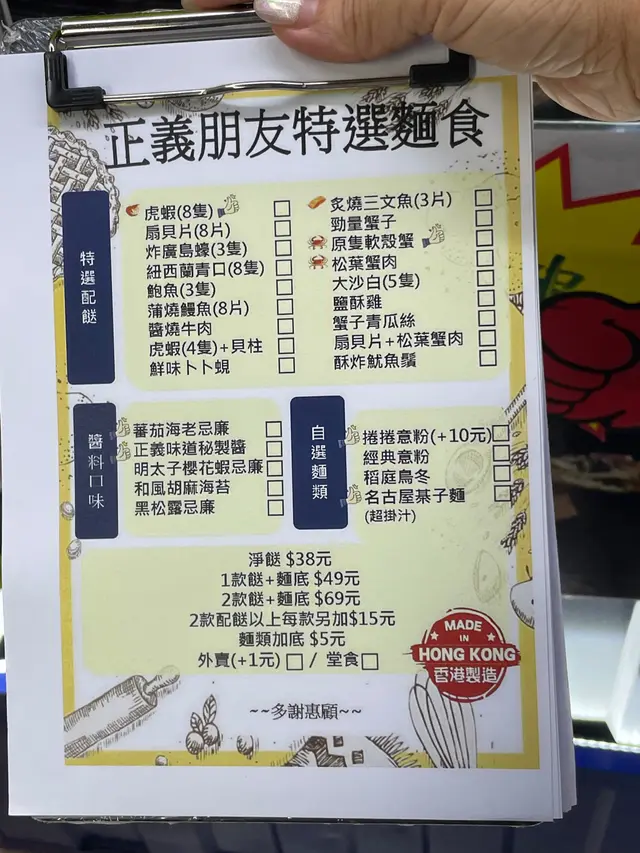 正義朋友特選麵食
特選配餸
虎蝦(8隻)
扇貝片(8片)
炸廣島蠔(3隻)
紐西蘭青口(8隻)
鮑魚(3隻)
蒲燒鰻魚(8片)
醬燒牛肉
虎蝦(4隻)+貝柱
鮮味卜卜蜆
炙燒三文魚(3片)
勁量蟹子
原隻軟殼蟹
松葉蟹肉
大沙白(5隻)
鹽酥雞
蟹子青瓜絲
扇貝片+松葉蟹肉
酥炸魷魚鬚
醬料口味
蕃茄海老忌廉
正義味道秘製醬
明太子櫻花蝦忌廉
和風胡麻海苔
黑松露忌廉
自選麵類
捲捲意粉(+10元)
經典意粉
稻庭烏冬
名古屋棊子麵
(超掛汁)
淨餸 $38元
1款餸+麵底 $49元
2款餸+麵底 $69元
2款配餸以上每款另加$15元
麵類加底 $5元
外賣(+1元) / 堂食
MADE
IN
HONG KONG
香港製造
~~多謝惠顧~~